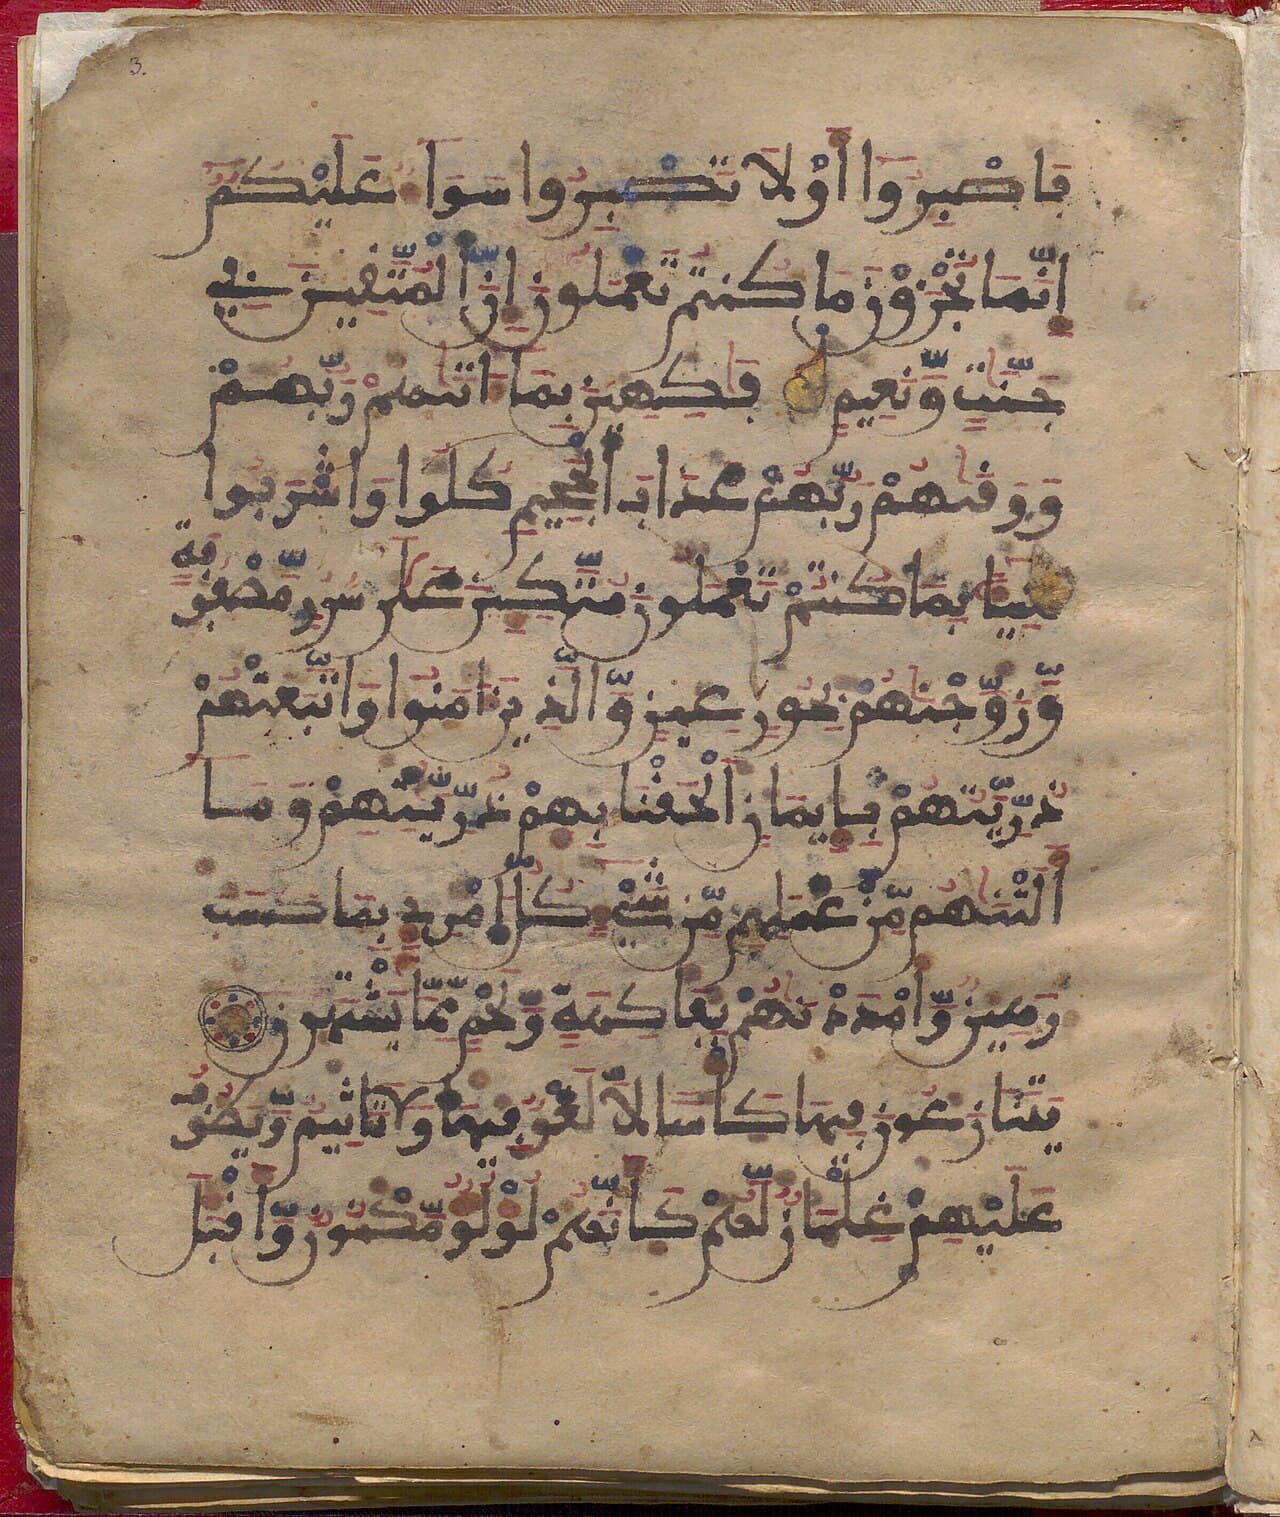 3.
فاصبروا أو لا تصبروا سوا عليكم
إنما تجزون ما كنتم تعملون إن المتقين في
جنت ونعيم فكهين بما اتيهم ربهم
ووقيهم ربهم عذاب الجحيم كلوا واشربوا
هنيا بما كنتم تعملون متكين على سرر مصفوفة
وزوجنهم بحور عين والذين امنوا واتبعتهم
ذريتهم بإيمان ألحقنا بهم ذريتهم وما
ألتنهم من عملهم من شيء كل امري بما كسب
رهين وأمددنهم بفاكهة ولحم مما يشتهون
يتنازعون فيها كأسا لا لغو فيها ولا تأثيم ويطوف
عليهم غلمان لهم كأنهم لؤلؤ مكنون وأقبل